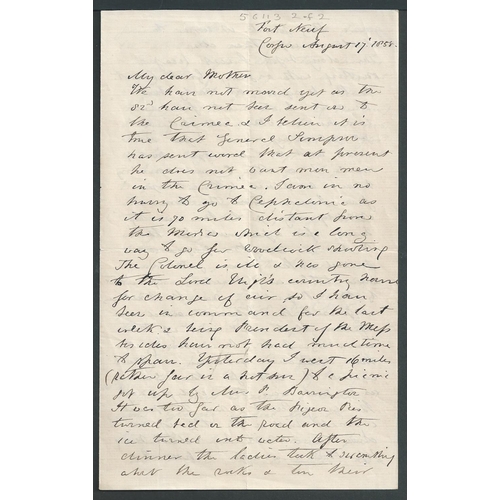 56113 2 of 2
Fort Neuf
Corfu August 17 1855.
My dear Mother
We have not moved yet as the
82d have not been sent on to
the Crimea & I believe it is
true that General Simpson
has sent word that at present
he does not want more men
in the Crimea. I am in no
hurry to go to Cephalonia as
it is 70 miles distant from
the which is a long
way to go for woodcock shooting
The Colonel is ill & has gone
to the Lord High's country house
for change of air so I have
been in command for the last
week & being President of the Mess
besides have not had much time
to spare. Yesterday I went 16 miles
(rather far in a hot sun) to a picnic
got up by Mrs F. Barrington
It was too far as the Pigeon Pies
turned bad on the road and the
ice turned into water. After
dinner the ladies took to scrambling
about the rocks & tore their